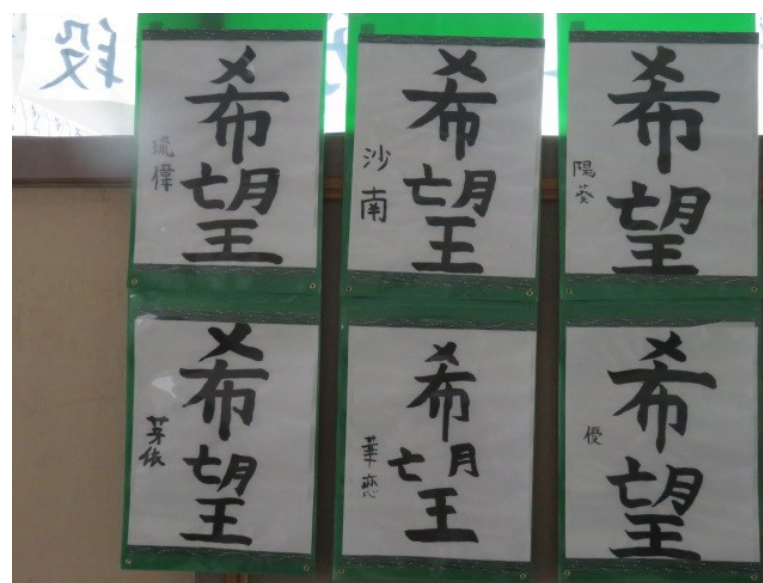 希望
琉偉
希望
沙南
希望
陽葵
希望
芽依
希望
華恋
希望
優
段